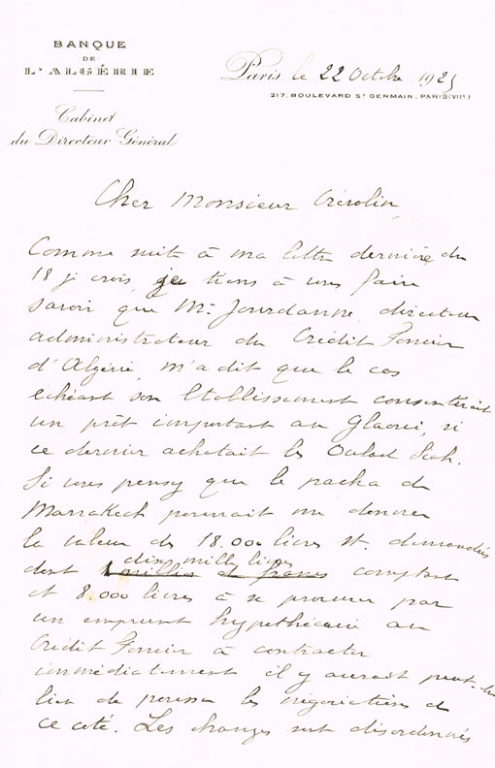 BANQUE
DE
L'ALGÉRIE
Cabinet
du Directeur Général
Paris le 22 Octobre 1925
217, BOULEVARD ST GERMAIN, PARIS (VIIe)
Cher Monsieur
Comme suite à ma lettre dernière du
18 je crois, je tiens à vous faire
savoir que Mr. Jourdanne, directeur
administrateur du Crédit Foncier
d'Algérie, m'a dit que le cas
échéant son Etablissement consentirait
un prêt important au Glaoui, si
ce dernier achetait les Oulad Sidh.
Si vous pensez que le pacha de
Marrakech pourrait me donner
la valeur des 18.000 livres st. demandées
dix mille livres
dont 1 million de francs comptant
et 8.000 livres à se procurer par
un emprunt hypothécaire au
Crédit Foncier à contracter
immédiatement il y aurait peut-être
lieu de pousser les négociations de
ce côté. Les changes sont désordonnés